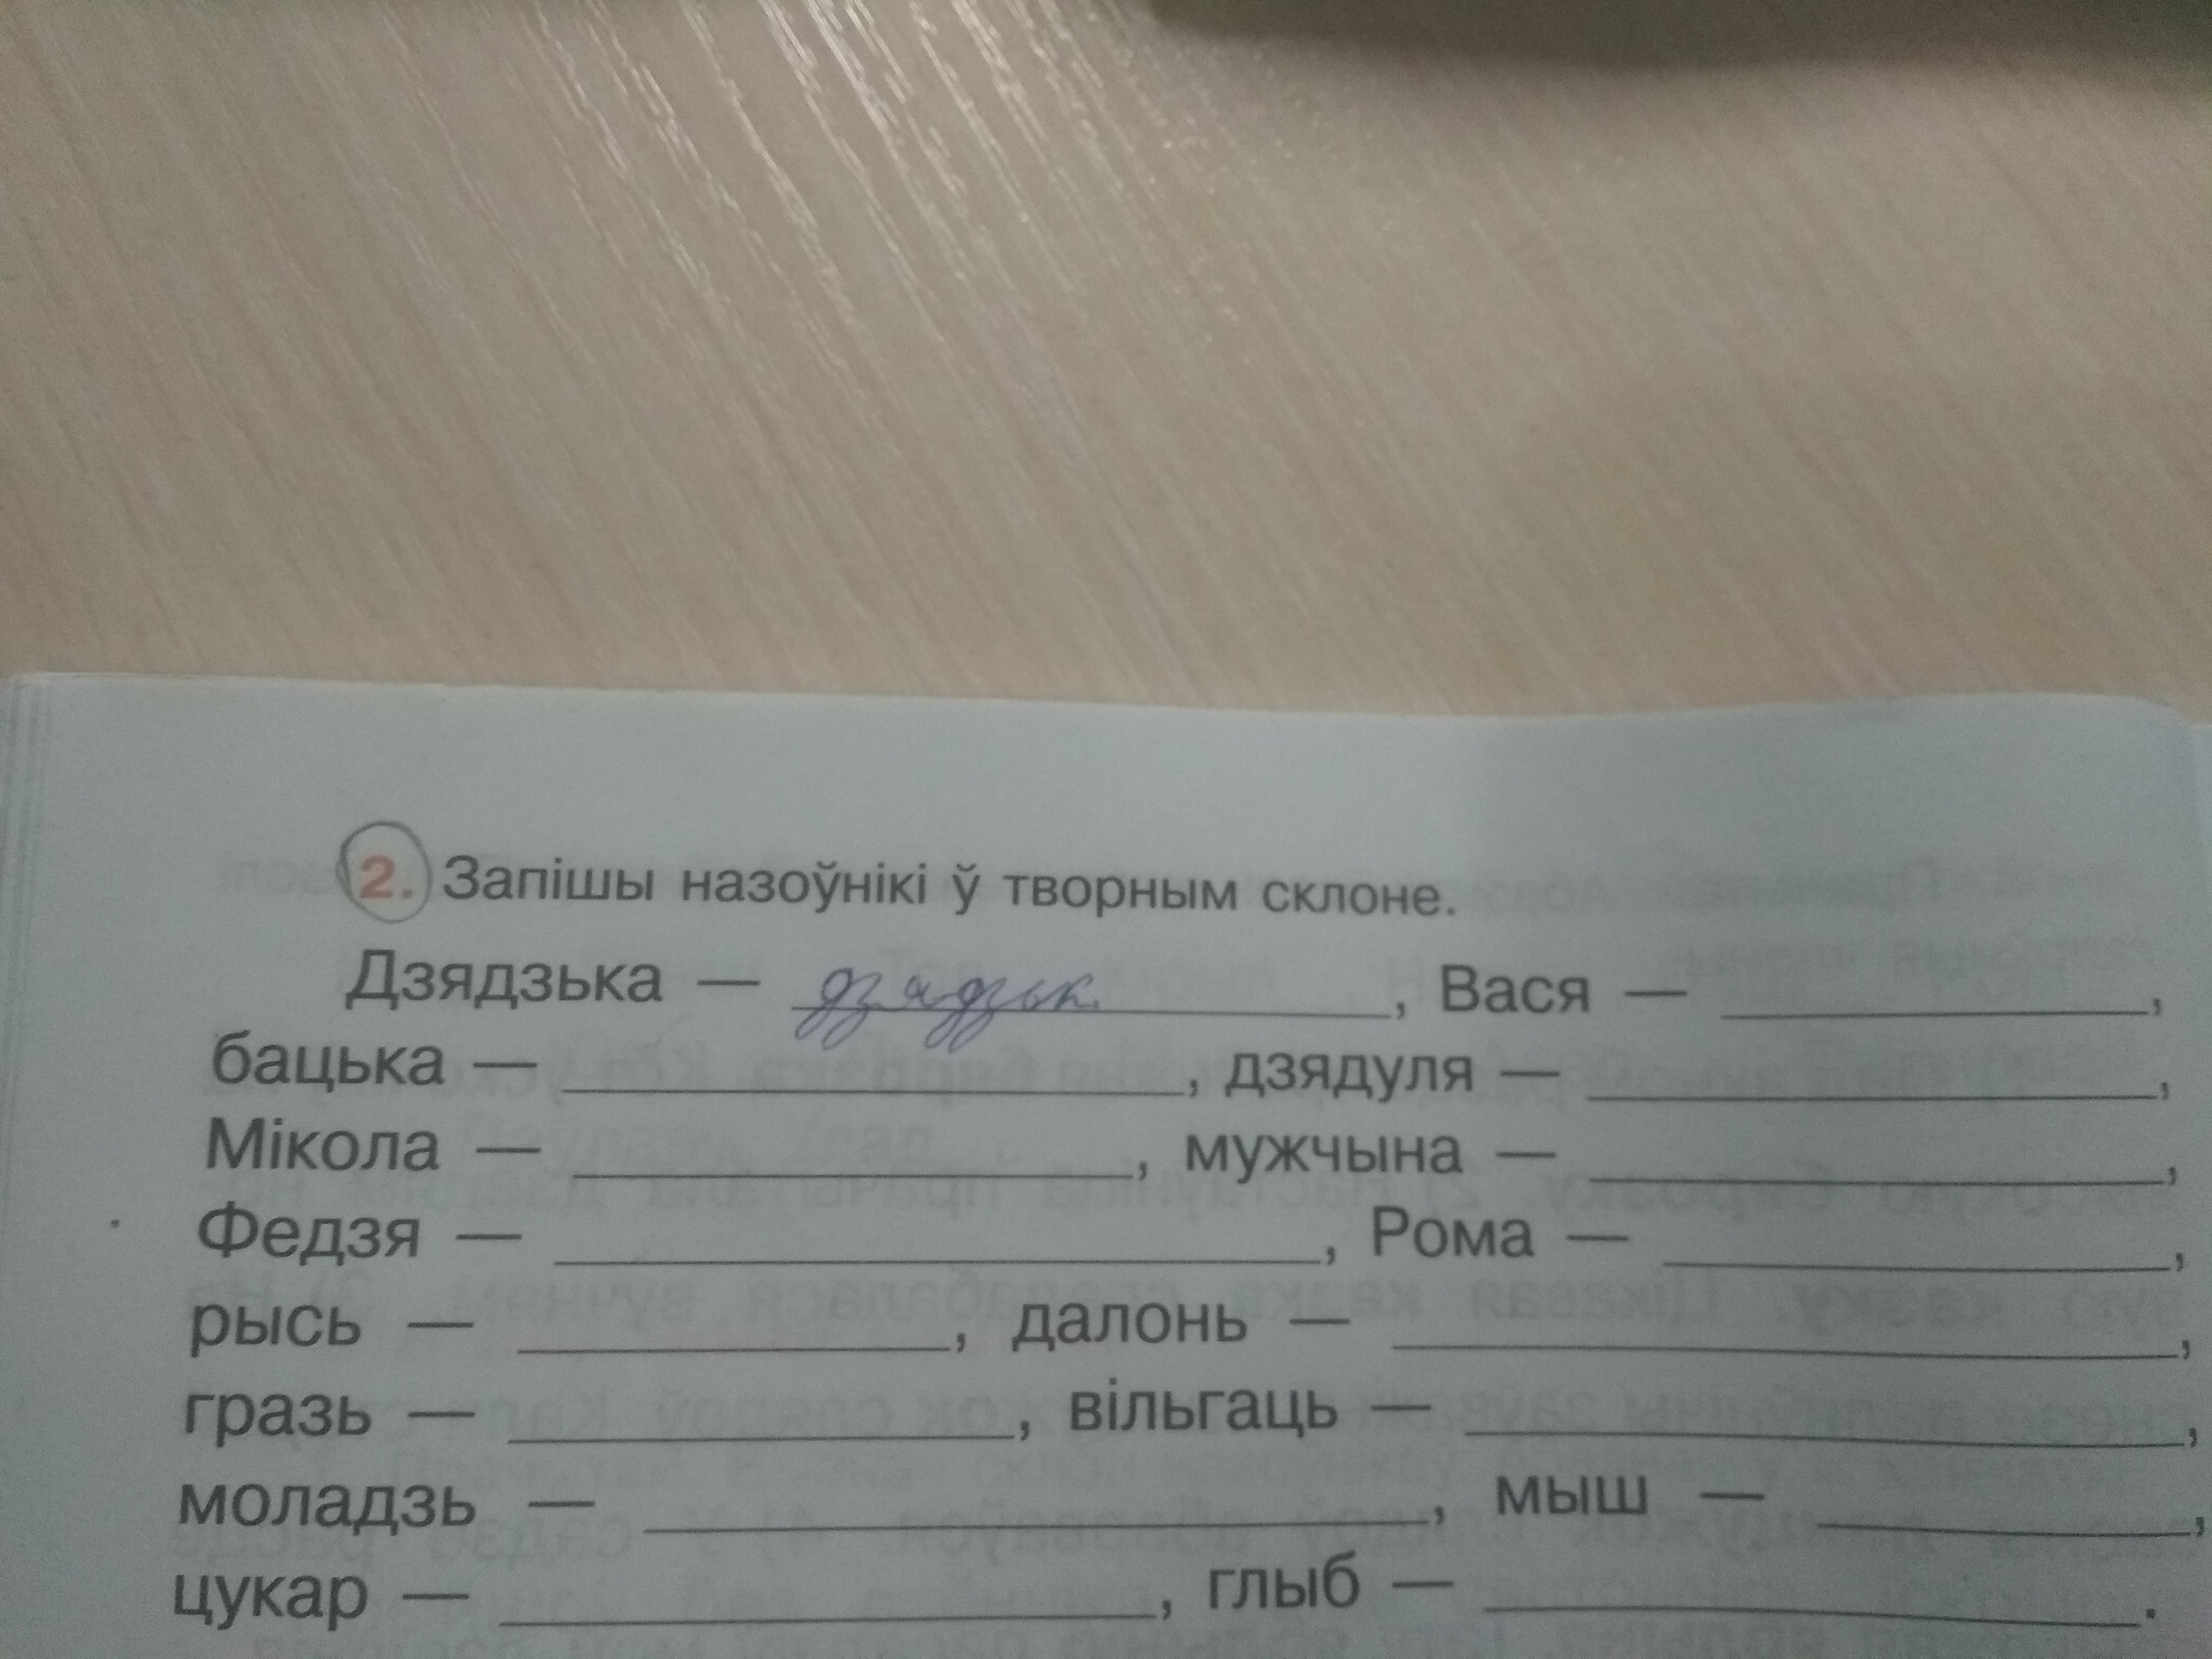 2. Запішы назоўнікі ў творным склоне.
Дзядзька — дзядзьк , Вася — ,
бацька — , дзядуля — ,
Мікола — , мужчына — ,
Федзя — , Рома — ,
рысь — , далонь — ,
гразь — , вільгаць — ,
моладзь — , мыш — ,
цукар — , глыб — .